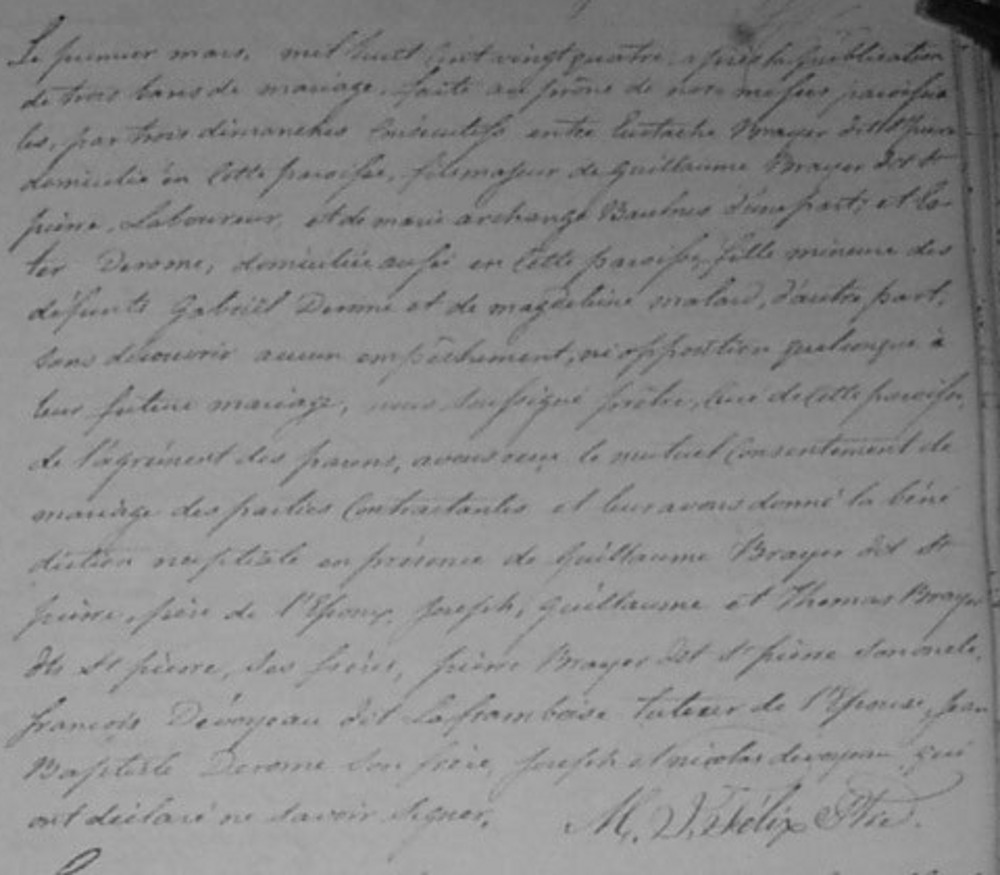 Le premier mars, mil huit cent vingt quatre, après la publication
de trois bans de mariage, faite au prône de nos messes paroissia
les, par trois dimanches consécutifs entre Eustache Brayer dit St pierre
domicilié en cette paroisse, fils majeur de Guillaume Brayer dit St
pierre, Laboureur, et de marie archange Baulnes d'une part; et
Derome, domiciliée aussi en cette paroisse, fille mineure des
défunts Gabriël Derome et de magdeleine malard, d'autre part,
sans découvrir aucun empêchement, ni opposition quelconque à
leur futur mariage, nous soussigné prêtre, Curé de cette paroisse,
de l'agrément des parens, avons reçu le mutuel Consentement de
mariage des parties Contractantes et leur avons donné la béné
diction nuptiale en présence de Guillaume Brayer dit St
pierre, père de l'Epoux, Joseph, Guillaume et Thomas Brayer
dits St pierre, ses frères, pierre Brayer dit St pierre son oncle,
françois Dévoyeau dit Laframboise tuteur de l'Epouse, Jean
Baptiste Derome son frère, Joseph et nicolas devoyeau, qui
ont déclaré ne savoir signer.
M. D. St Félix Ptre.